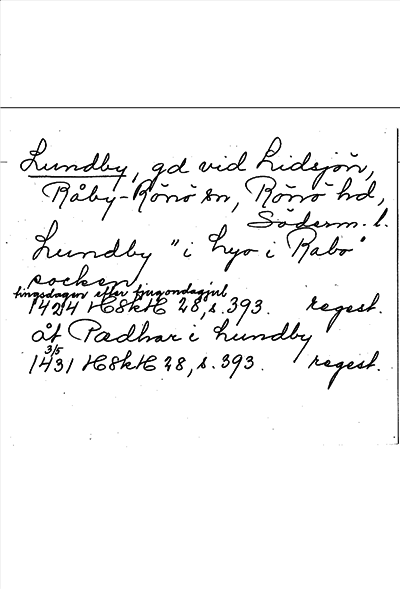 Lundby, gd vid Lidsjön,
Råby-Rönö sn, Rönö hd,
Söderm. l.
Lundby "i Lyo i Rabo"
socken
tingsdagen efter tjugondagjul
1424 HSkH 28, s. 393. regest.
åt Pædhar i Lundby
3/5
1431 HSkH 28, s. 393. regest.